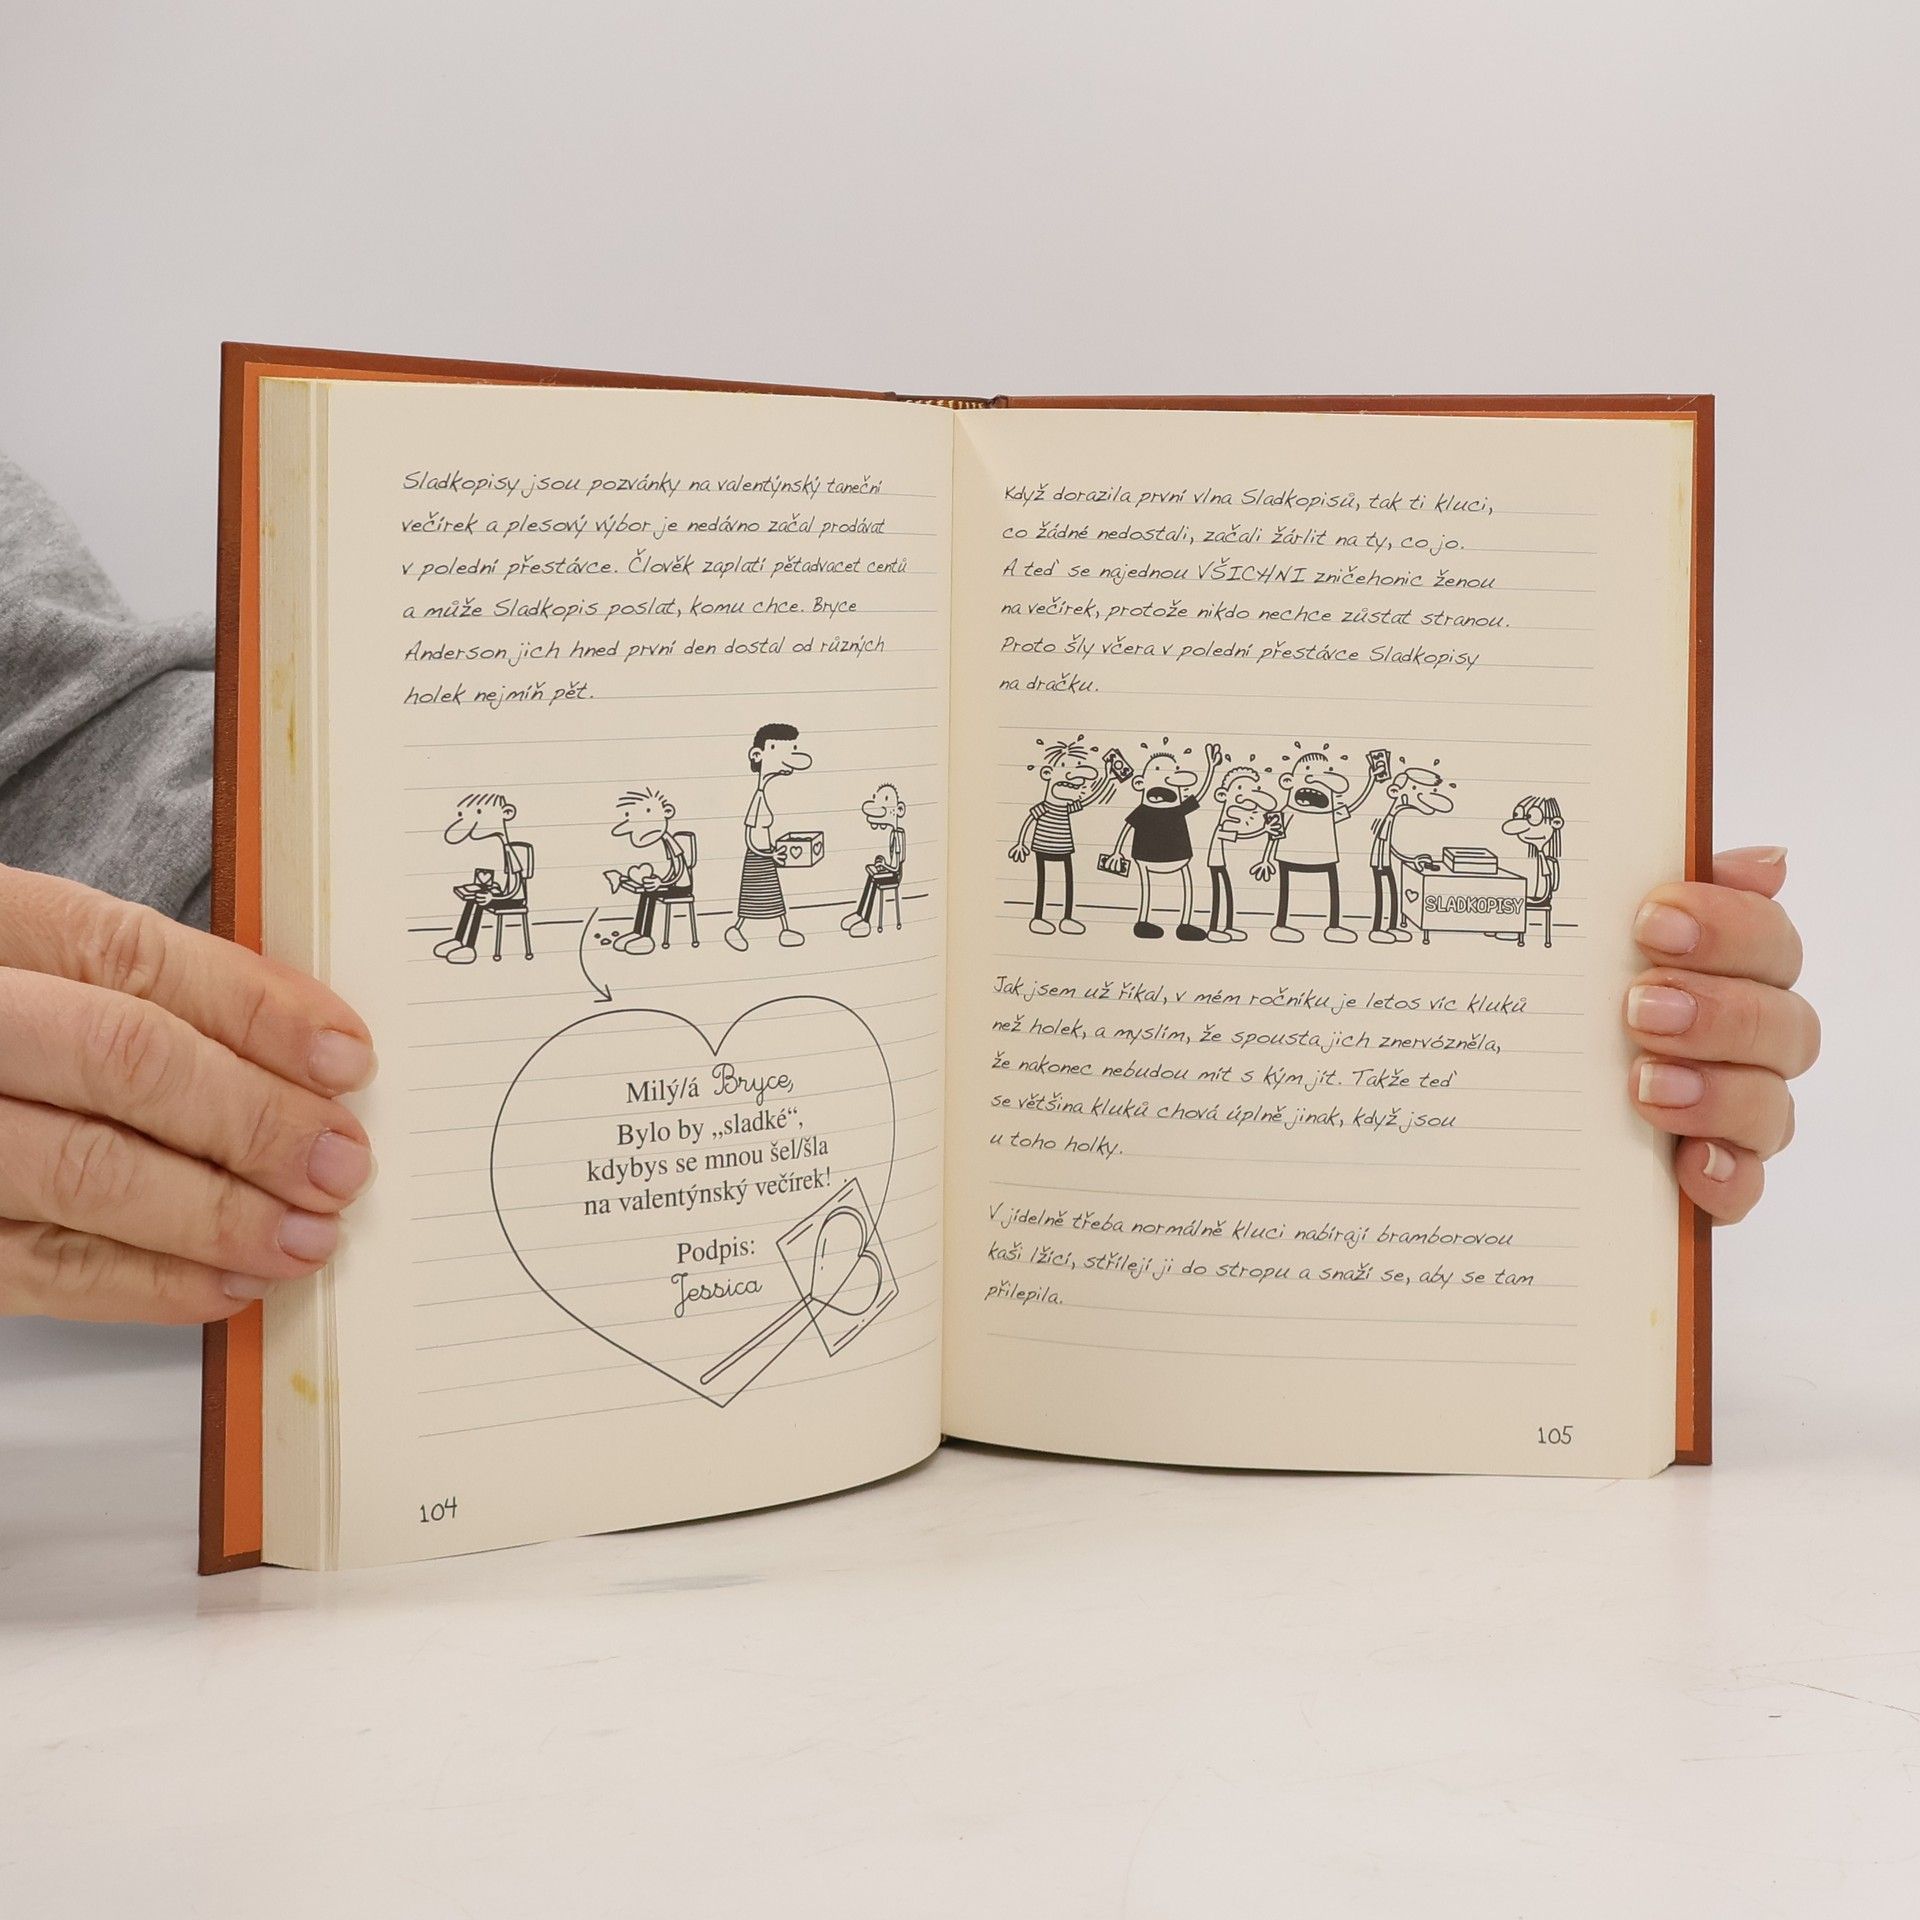 Sladkopisy jsou pozvánky na valentýnský taneční
večírek a plesový výbor je nedávno začal prodávat
v polední přestávce. Člověk zaplatí pětadvacet centů
a může Sladkopis poslat, komu chce. Bryce
Anderson jich hned první den dostal od různých
holek nejmíň pět.
Milý/á Bryce,
Bylo by „sladké“,
kdybys se mnou šel/šla
na valentýnský večírek!
Podpis:
Jessica
104
Když dorazila první vlna Sladkopisů, tak ti kluci,
co žádné nedostali, začali žárlit na ty, co jo.
A teď se najednou VŠICHNI zničehonic ženou
na večírek, protože nikdo nechce zůstat stranou.
Proto šly včera v polední přestávce Sladkopisy
na dračku.
SLADKOPISY
Jak jsem už říkal, v mém ročníku je letos víc kluků
než holek, a myslím, že spousta jich znervózněla,
že nakonec nebudou mít s kým jít. Takže teď
se většina kluků chová úplně jinak, když jsou
u toho holky.
V jídelně třeba normálně kluci nabírají bramborovou
kaši lžící, střílejí ji do stropu a snaží se, aby se tam
přilepila.
105